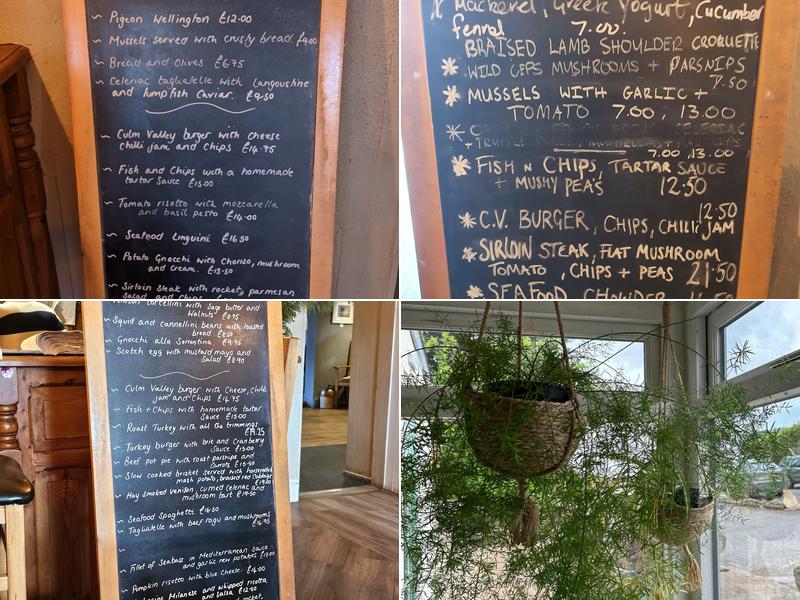 ~ Pigeon Wellington £12.00
~ Mussels served with crusty bread. £9.00
~ Bread and Olives £6.75
~ Celeriac tagliatelle with Langoustine
and lumpfish caviar. £9.50
~ Culm Valley burger with cheese
chilli jam and chips £14.75
~ Fish and Chips with a homemade
tartar Sauce £15.00
~ Tomato risotto with mozzarella
and basil pesto £14.00
~ Seafood Linguini £16.50
~ Potato Gnocchi with Chorizo, mushroom
and Cream. £15.50
~ Sirloin Steak with rocket, parmesan
Salad and Chips
Mackerel, Greek Yogurt, Cucumber
fenral 7.00.
BRAISED LAMB SHOULDER CROQUETTE
WILD CEPS MUSHROOMS + PARSNIPS
7.50
MUSSELS WITH GARLIC +
TOMATO 7.00, 13.00
CELERIAC
+ TRUFFLE MUSHROOMS + PARSNIPS
7.00, 13.00
FISH N CHIPS, TARTAR SAUCE
+ MUSHY PEA'S 12:50
12:50
C.V. BURGER, CHIPS, CHILLI JAM
SIRLOIN STEAK, FLAT MUSHROOM
TOMATO, CHIPS + PEAS 21:50
SEAFOOD CHOWDER
Torcellini with Sage butter and
Walnuts £8.95
~ Squid and cannellini beans with toasted
bread £8.50
~ Gnocchi alla Sorrentina. £9.95
~ Scotch egg with mustard mayo and
Salad £8.90
~ Culm Valley burger with Cheese, chilli
jam and Chips £14.75
~ Fish + Chips with homemade tartar
Sauce £15.00
~ Roast Turkey with all the trimmings
£19.25
~ Turkey burger with brie and Cranberry
Sauce £15.00
~ Beef pot pie with roast parsnips and
Carrots £16.50
~ Slow cooked brisket served with horseradish
mash potato, braised red Cabbage
£19.00
~ Hay smoked Venison, turned celeriac and
mushroom tart £19.50
~ Seafood Spaghetti £16.50
~ Tagliatelle with beef ragu and mushrooms
£16.95
~ Fillet of Seabass in Mediterranean sauce
and garlic new potatoes £19.00
~ Pumpkin risotto with blue Cheese £14.00
Milanese and whipped ricotta
and Salsa £12.50